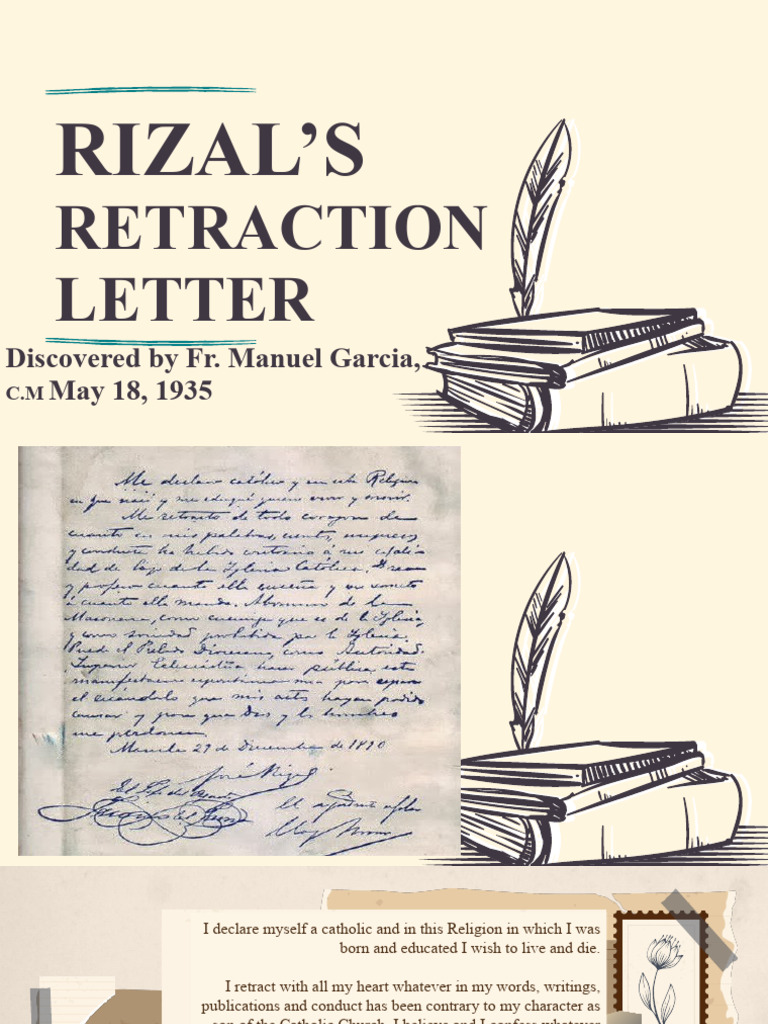 RIZAL’S
RETRACTION
LETTER
Discovered by Fr. Manuel Garcia,
C.M May 18, 1935
Me declaro católico y en esta Religion
en que nací y me eduqué quiero vivir y morir.
Me retracto de todo corazon de
cuanto en mis palabras, escritos, impresos
y conducta ha habido contrario á mi cali
dad de hijo de la Iglesia Católica. Creo
y profeso cuanto ella enseña y me someto
á cuanto ella manda. Abomino de la
Masoneria, como enemiga que es de la Iglesia,
y como sociedad prohibida por la Iglesia.
Puede el Prelado Diocesano, como Autoridad
Superior Eclesiástica, hacer pública esta
manifestacion espontanea mia para reparar
el escándalo que mis actos hayan podido
causar y para que Dios y los hombres
me perdonen.
Manila 29 de Diciembre de 1890
José Rizal
I declare myself a catholic and in this Religion in which I was
born and educated I wish to live and die.
I retract with all my heart whatever in my words, writings,
publications and conduct has been contrary to my character as
son of the Catholic Church. I believe and I confess whatever